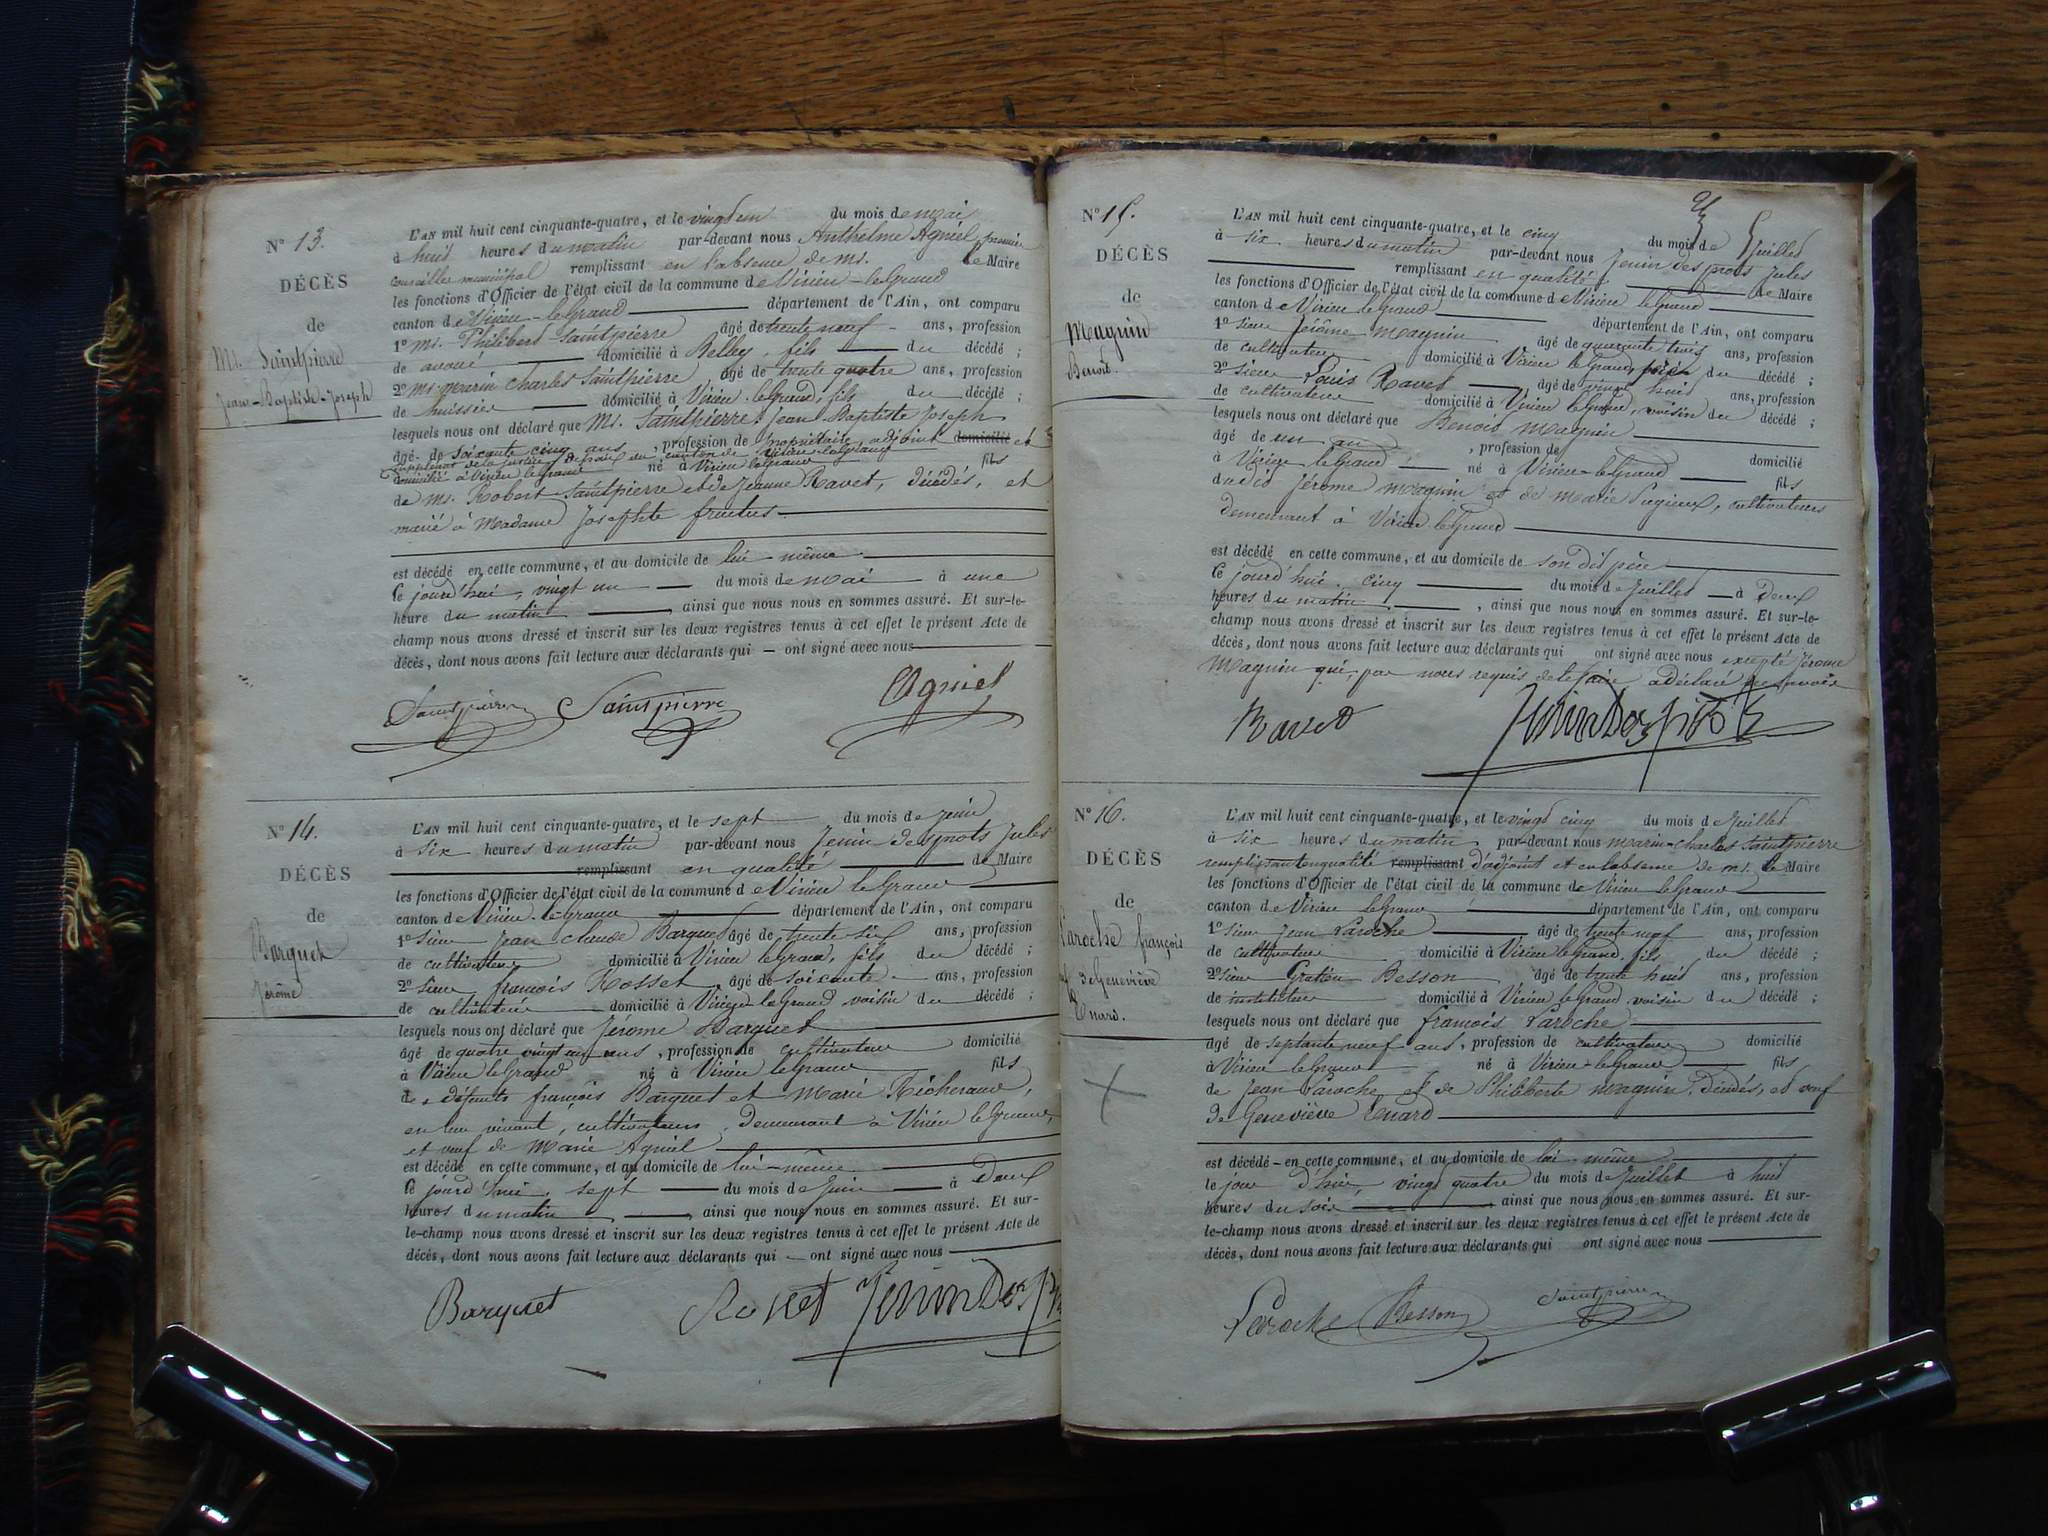 N° 13.
DÉCÈS
de
M. Saintpierre
Jean-Baptiste-Joseph
L'AN mil huit cent cinquante-quatre, et le vingt un du mois de mai
à huit heures du matin par-devant nous Anthelme Agniel, premier
conseiller municipal remplissant en l'absence de Mr. le Maire
les fonctions d'Officier de l'état civil de la commune de Virieu-le-Grand
canton de Virieu-le-Grand département de l'Ain, ont comparu
1° Mr. Philibert Saintpierre âgé de trente neuf ans, profession
de avoué domicilié à Belley, fils du décédé ;
2° Mr. Marin Charles Saintpierre âgé de trente quatre ans, profession
de huissier domicilié à Virieu-le-Grand, fils du décédé ;
lesquels nous ont déclaré que Mr. Saintpierre, Jean Baptiste Joseph
âgé de soixante cinq ans, profession de propriétaire, adjoint domicilié et
suppléant de la justice de paix du canton de Virieu-le-Grand
domicilié à Virieu le Grand né à Virieu le Grand fils
de Mr. Robert Saintpierre et de Jeanne Ravet, décédés, et
marié à Madame Josephte fructus
est décédé en cette commune, et au domicile de lui-même
le jourd'hui, vingt un du mois de mai à une
heure du matin, ainsi que nous nous en sommes assuré. Et sur-le-
champ nous avons dressé et inscrit sur les deux registres tenus à cet effet le présent Acte de
décès, dont nous avons fait lecture aux déclarants qui ont signé avec nous
Saintpierre Saintpierre Agniel
N° 14.
DÉCÈS
de
Barquet
Jérôme
L'AN mil huit cent cinquante-quatre, et le sept du mois de juin
à six heures du matin par-devant nous Jenin desprots Jules
remplissant en qualité de Maire
les fonctions d'Officier de l'état civil de la commune de Virieu le Grand
canton de Virieu-le-Grand département de l'Ain, ont comparu
1° sieur Jean Claude Barquet âgé de trente six ans, profession
de cultivateur domicilié à Virieu le Grand, fils du décédé ;
2° sieur françois Rosset âgé de soixante ans, profession
de cultivateur domicilié à Virieu-le-Grand voisin du décédé ;
lesquels nous ont déclaré que Jérome Barquet
âgé de quatre vingt un ans, profession de cultivateur domicilié
à Virieu le Grand né à Virieu le Grand fils
de défunts françois Barquet et Marie Richerand,
en leur vivant, cultivateurs, demeurant à Virieu le Grand,
et veuf de Marie Agniel
est décédé en cette commune, et au domicile de lui-même
le jourd'hui, sept du mois de juin à deux
heures du matin, ainsi que nous nous en sommes assuré. Et sur-
le-champ nous avons dressé et inscrit sur les deux registres tenus à cet effet le présent Acte de
décès, dont nous avons fait lecture aux déclarants qui ont signé avec nous
Barquet Rosset
N° 15.
DÉCÈS
de
Magnin
Benoit.
L'AN mil huit cent cinquante-quatre, et le cinq du mois de Juillet
à six heures du matin par-devant nous Jenin desprots Jules
remplissant en qualité de Maire
les fonctions d'Officier de l'état civil de la commune de Virieu le Grand
canton de Virieu le Grand département de l'Ain, ont comparu
1° sieur Jérôme Magnin âgé de quarante trois ans, profession
de cultivateur domicilié à Virieu le Grand, père du décédé ;
2° sieur Louis Ravet âgé de vingt huit ans, profession
de cultivateur domicilié à Virieu le Grand, voisin du décédé ;
lesquels nous ont déclaré que Benoit Magnin
âgé de un an, profession de domicilié
à Virieu le Grand né à Virieu-le-Grand fils
du dit Jérome Magnin et de Marie Pugieux, cultivateurs
demeurant à Virieu le Grand
est décédé en cette commune, et au domicile de son dit père
le jourd'hui cinq du mois de Juillet à deux
heures du matin, ainsi que nous nous en sommes assuré. Et sur-le-
champ nous avons dressé et inscrit sur les deux registres tenus à cet effet le présent Acte de
décès, dont nous avons fait lecture aux déclarants qui ont signé avec nous excepté Jérome
Magnin qui, par nous requis de le faire a déclaré ne savoir
Ravet
N° 16.
DÉCÈS
de
Laroche françois
de Geneviève
Enard.
L'AN mil huit cent cinquante-quatre, et le vingt cinq du mois de Juillet
à six heures du matin par-devant nous Marin-Charles Saintpierre
remplissant en qualité remplissant d'adjoint et en labsence de Mr. le Maire
les fonctions d'Officier de l'état civil de la commune de Virieu le Grand
canton de Virieu le Grand département de l'Ain, ont comparu
1° sieur Jean Laroche âgé de trente neuf ans, profession
de cultivateur domicilié à Virieu le Grand, fils du décédé ;
2° sieur Gratien Besson âgé de trente huit ans, profession
de instituteur domicilié à Virieu le Grand voisin du décédé ;
lesquels nous ont déclaré que françois Laroche
âgé de septante neuf ans, profession de cultivateur domicilié
à Virieu le Grand né à Virieu-le-Grand fils
de Jean Laroche et de Philiberte Magnin, décédés, et veuf
de Geneviève Enard
est décédé en cette commune, et au domicile de lui-même
le jour d'hier, vingt quatre du mois de Juillet à huit
heures du soir ainsi que nous nous en sommes assuré. Et sur-
le-champ nous avons dressé et inscrit sur les deux registres tenus à cet effet le présent Acte de
décès, dont nous avons fait lecture aux déclarants qui ont signé avec nous
Laroche Besson Saintpierre